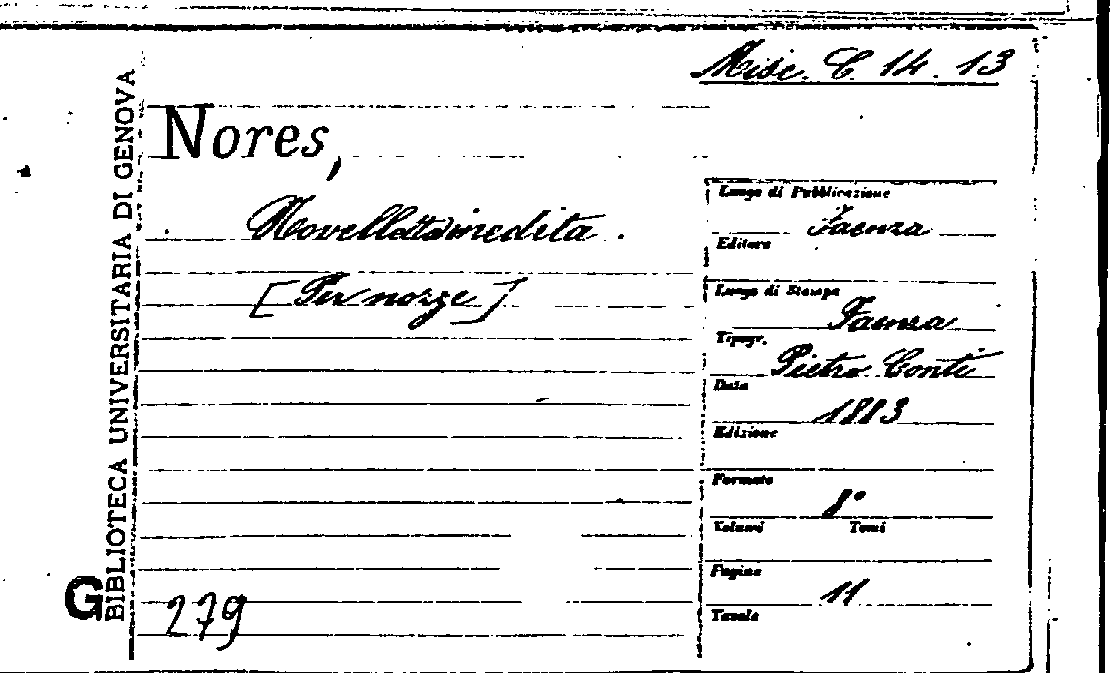 Misc. C. 14. 13
Nores,
Novelletta inedita.
[Per nozze]
Luogo di Pubblicazione
Faenza
Editore
Luogo di Stampa
Faenza
Tipogr.
Pietro Conti
Data
1883
Edizione
Formato
8°
Volumi Tomi
Pagine
11
Tavole
279
G BIBLIOTECA UNIVERSITARIA DI GENOVA